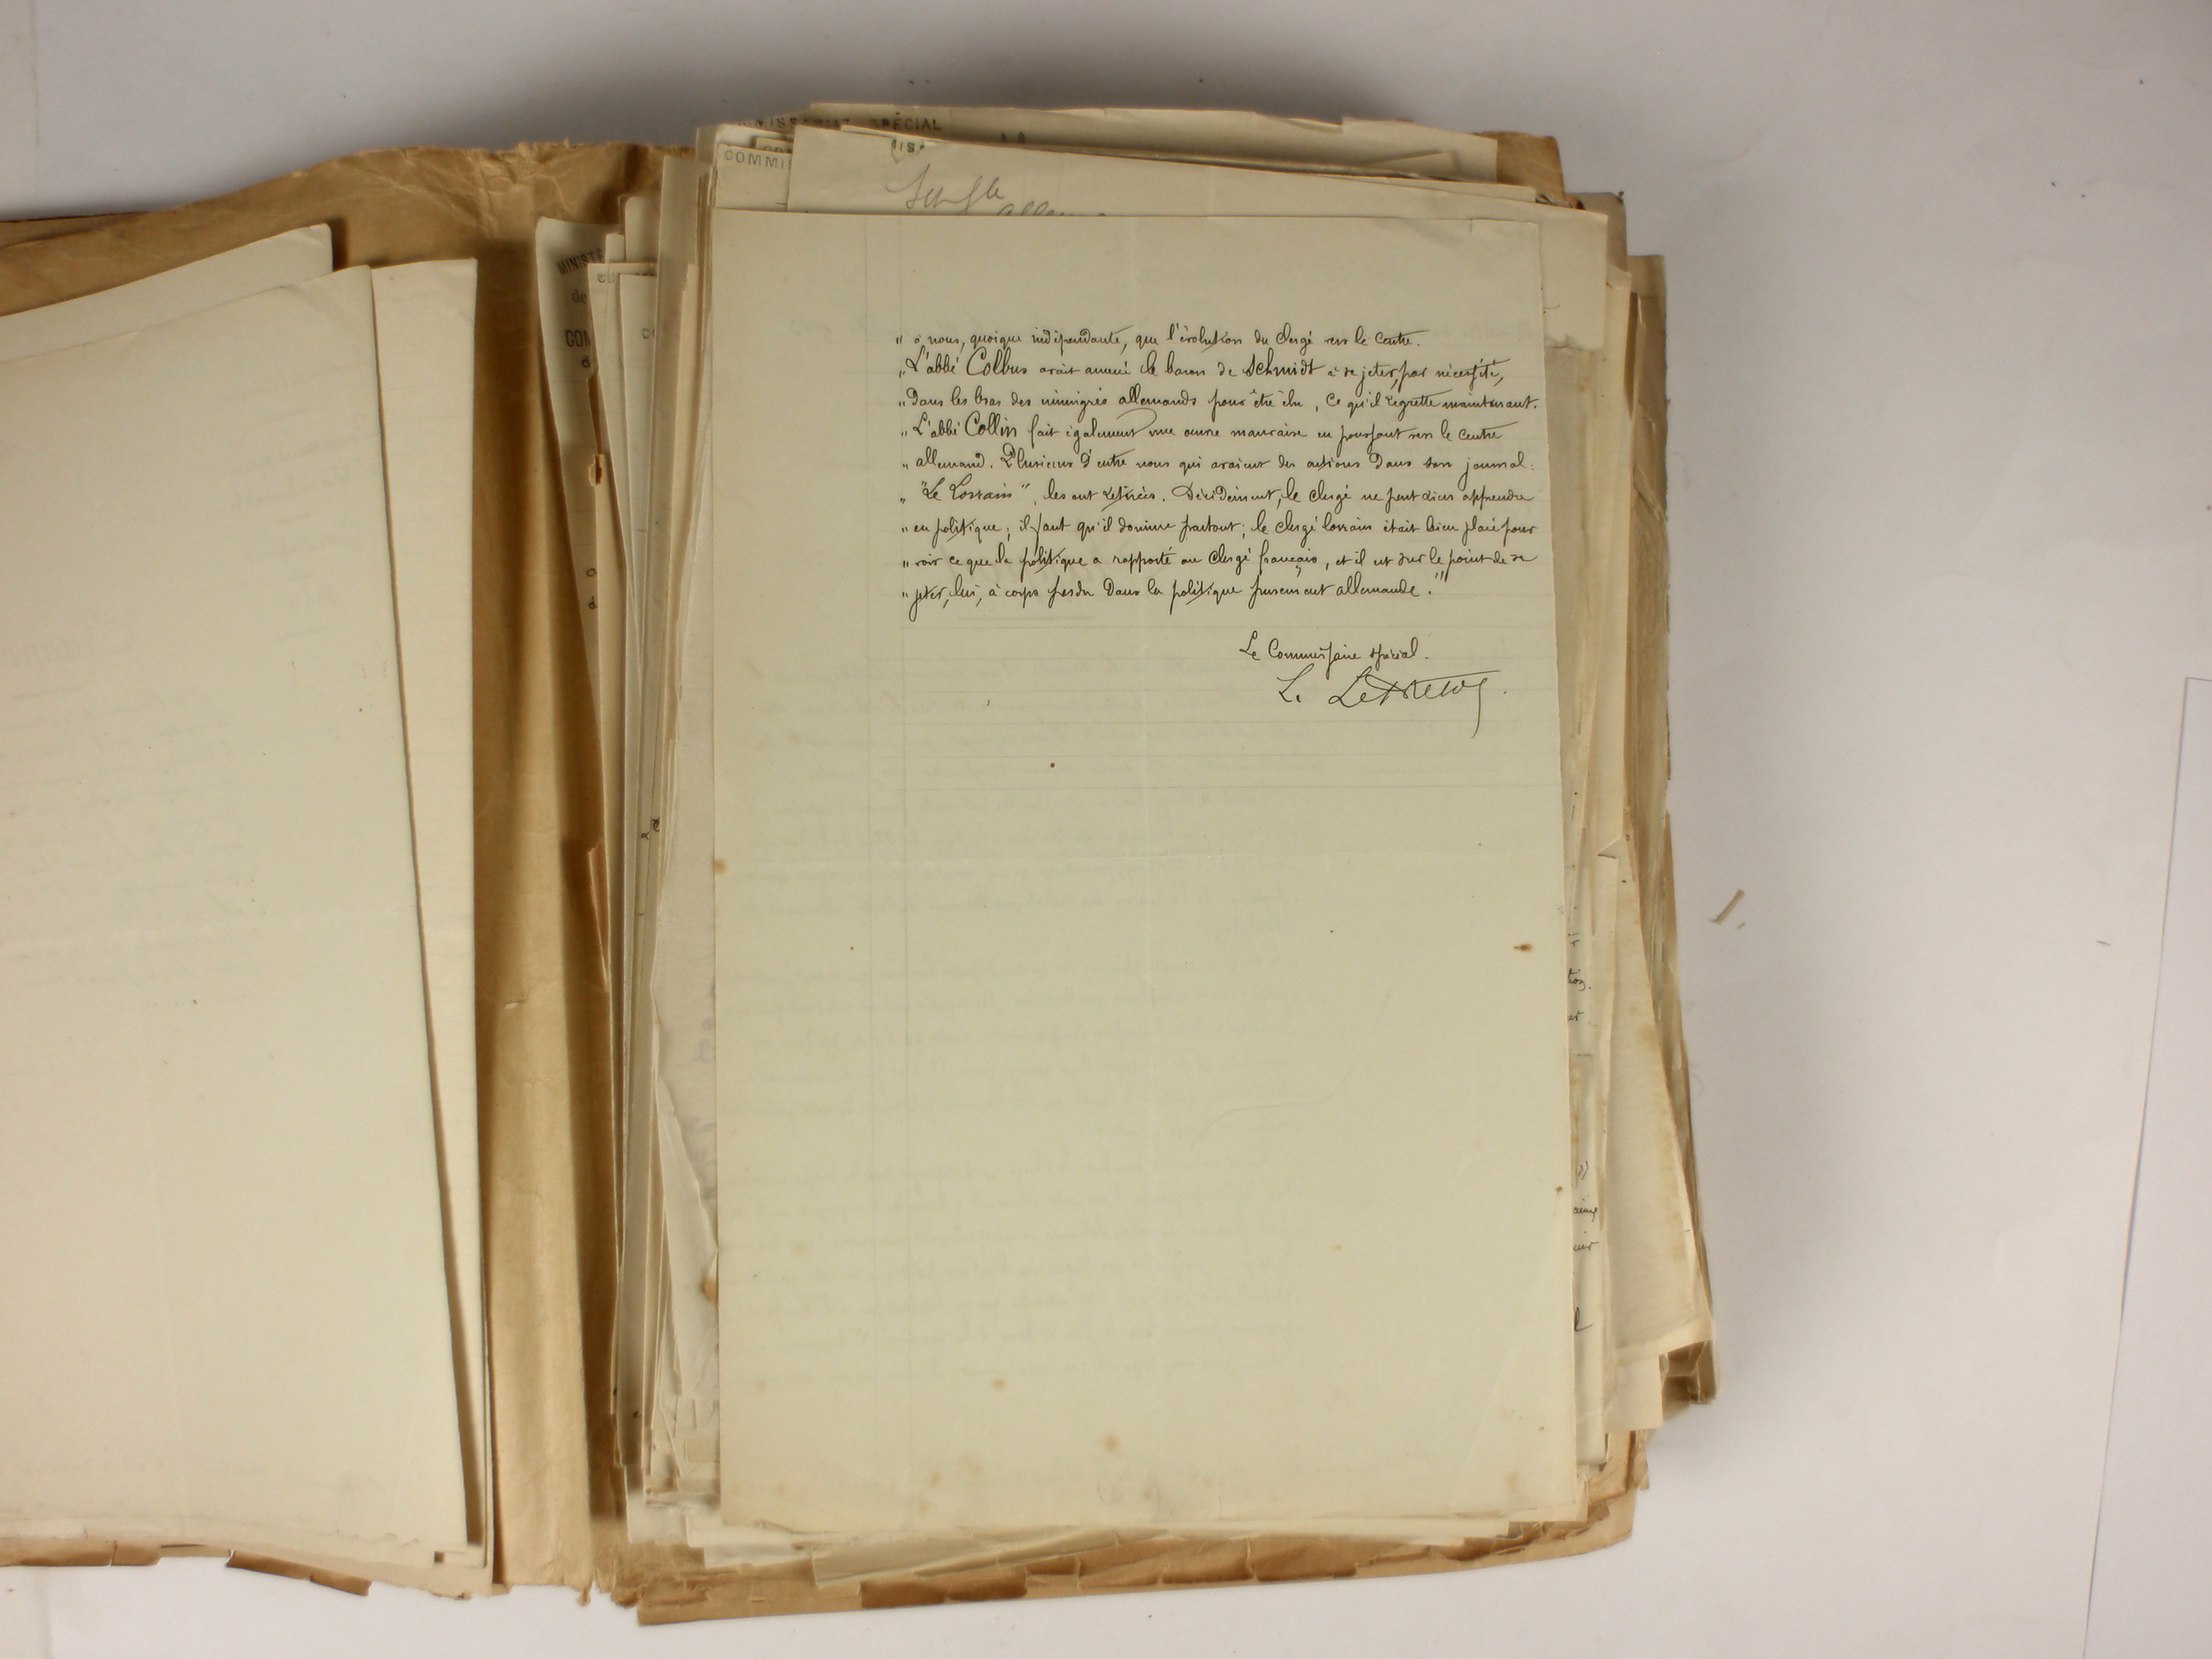 MISSARIAT SPÉCIAL
COMMIS
MINISTÈ
de
COM
" à nous, quoique indépendante, que l'évolution du clergé vers le Centre.
" L'abbé Collbus avait amené le baron de Schmidt à se jeter, par nécessité,
" dans les bras des immigrés allemands pour être élu, ce qu'il regrette maintenant.
" L'abbé Collin fait également une œuvre mauvaise en poussant vers le Centre
" allemand. Plusieurs d'entre nous qui avaient des actions dans son journal:
" "Le Lorrain", les ont retirées. Décidément, le clergé ne peut rien apprendre
" en politique; il faut qu'il domine partout; le clergé lorrain était bien placé pour
" voir ce que la politique a rapporté au clergé français, et il est sur le point de se
" jeter, lui, à corps perdu dans la politique purement allemande."
Le Commissaire spécial.
L.